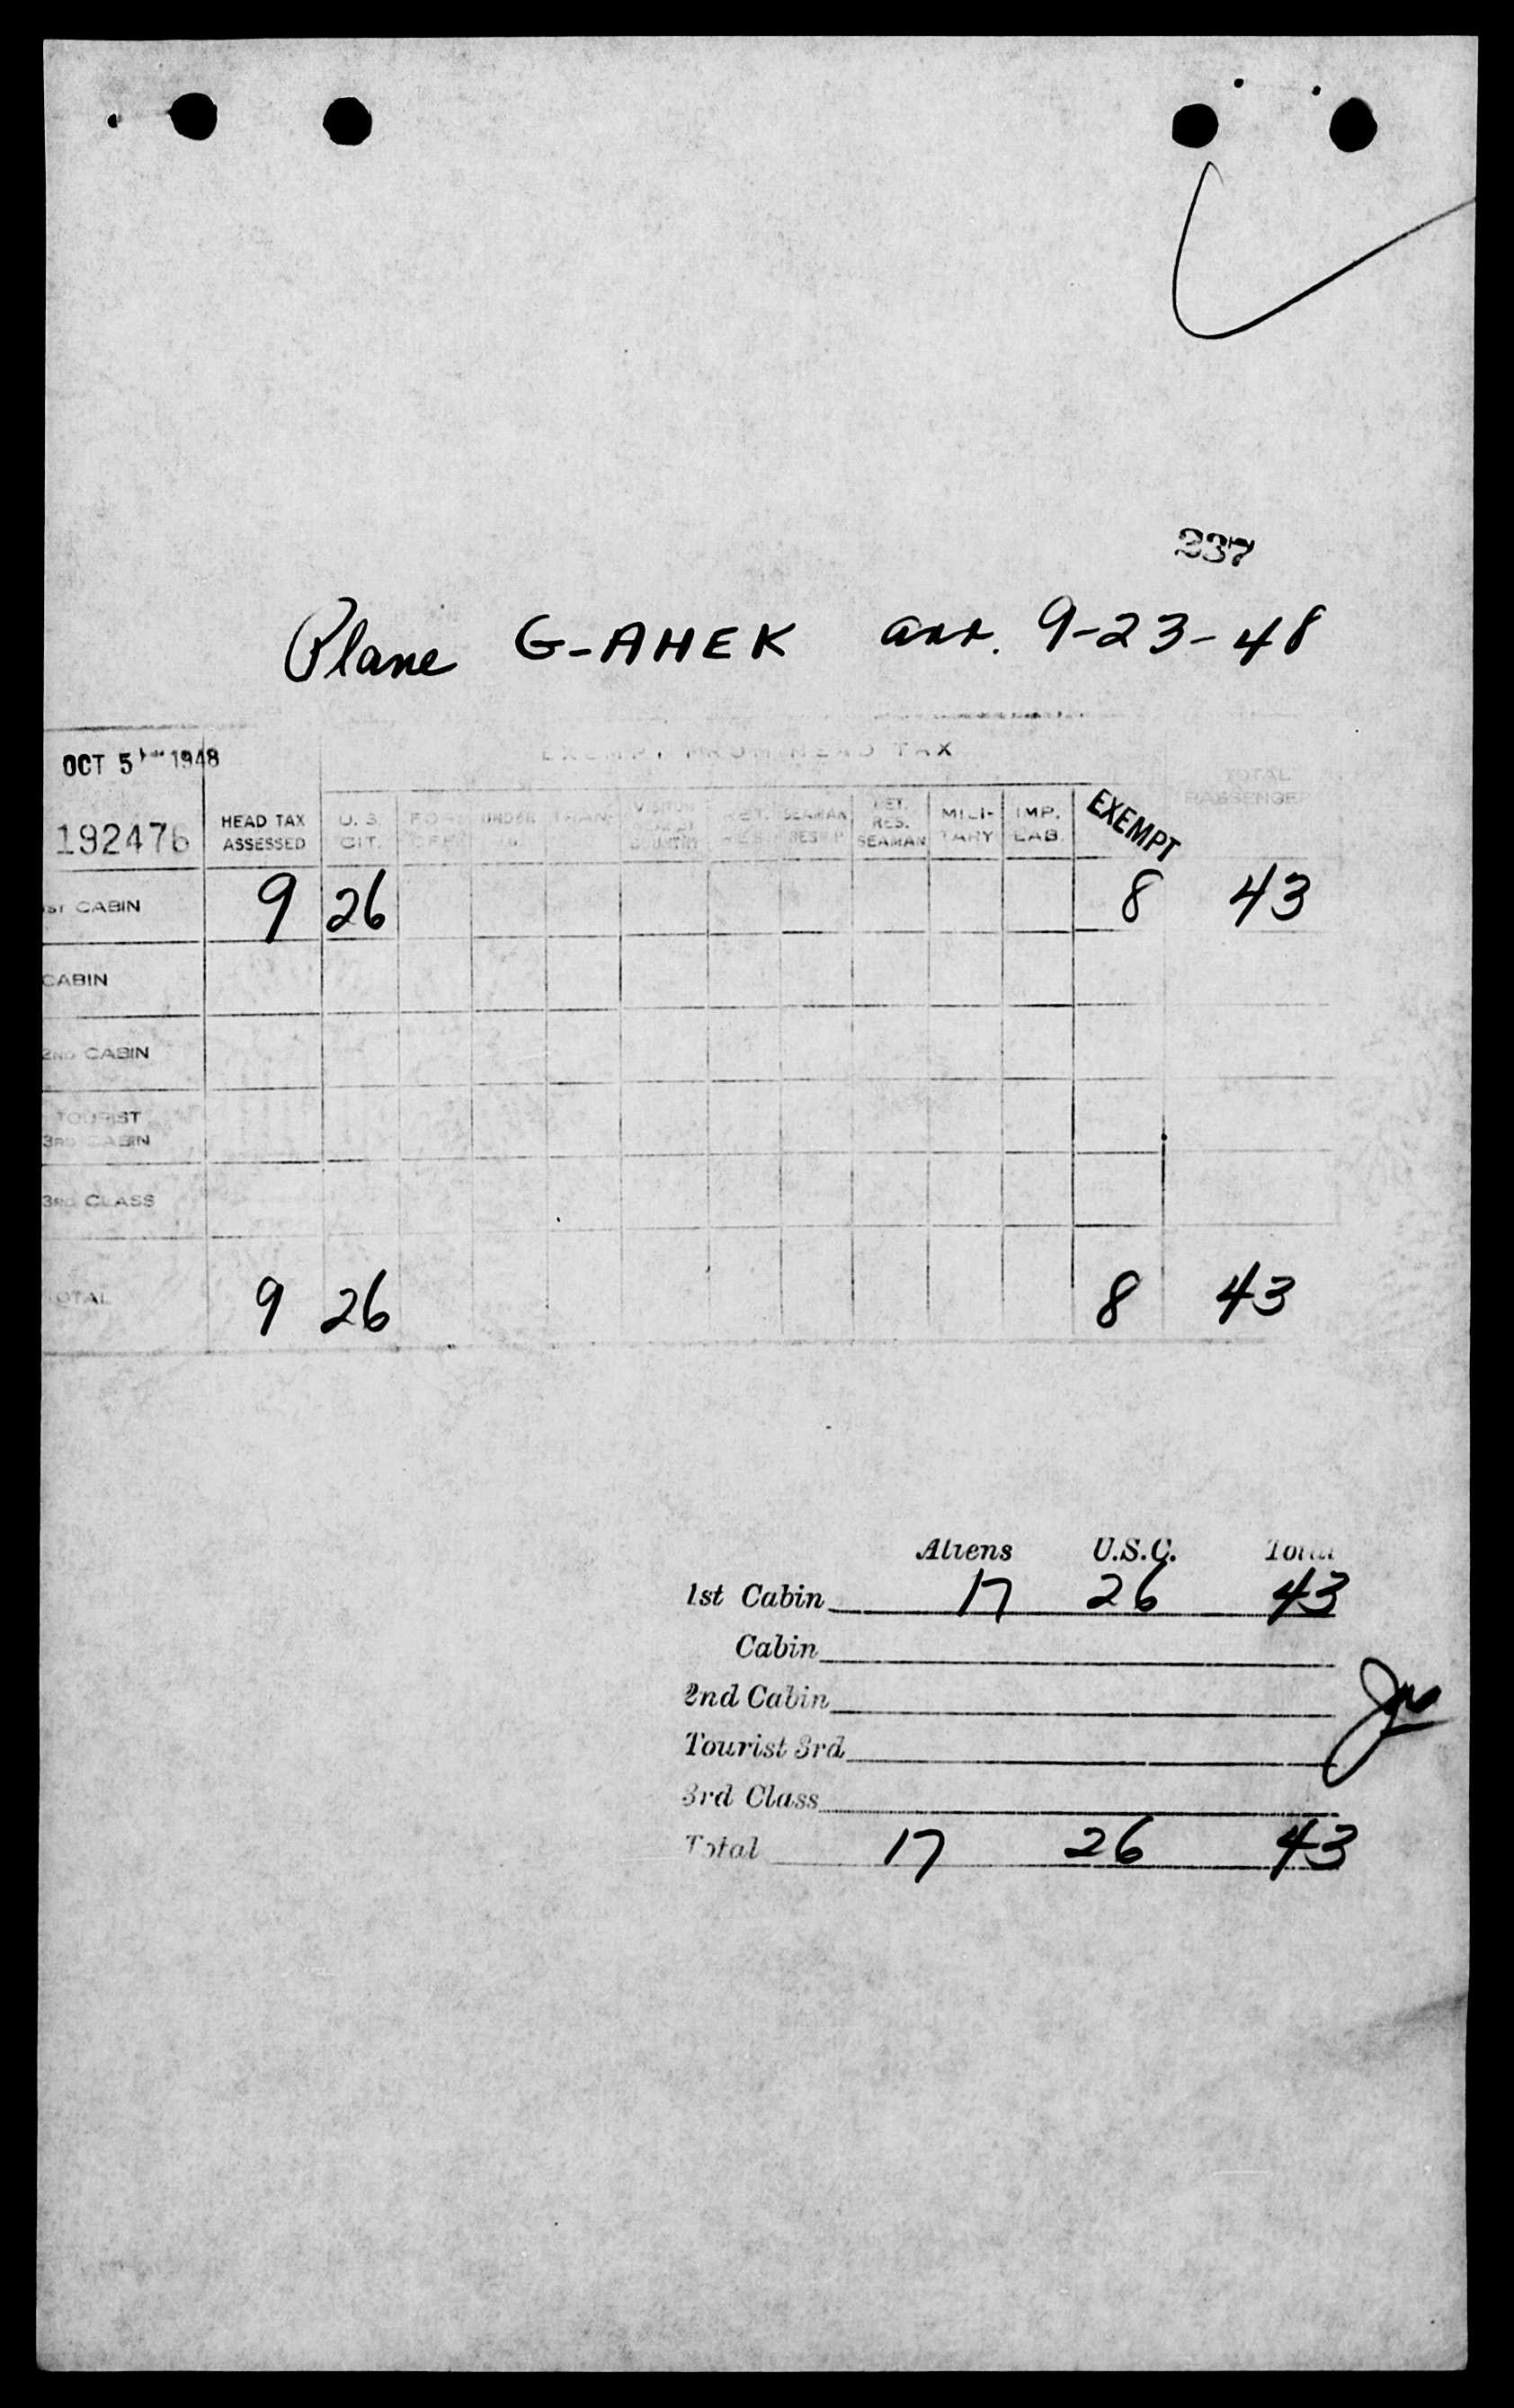 337
Plane G-AHEK arr. 9-23-48
OCT 5 1948
EXEMPT FROM HEAD TAX
TOTAL
PASSENGER
192476
HEAD TAX
ASSESSED
U. S.
CIT.
UNDER
TRAN-
VISITOR
COUNTRY
RET.
RES.
SEAMAN
RET.
RES.
SEAMAN
MILI-
TARY
IMP.
LAB.
EXEMPT
1ST CABIN 9 26 8 43
CABIN
2ND CABIN
TOURIST
3RD CABIN
3RD CLASS
TOTAL 9 26 8 43
Aliens U.S.C. Total
1st Cabin 17 26 43
Cabin
2nd Cabin
Tourist 3rd
3rd Class
Total 17 26 43